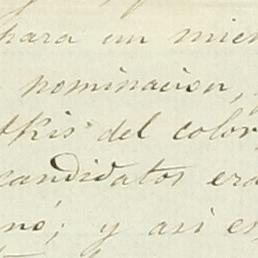 hara un mien
nominacion,
tkis del color
candidatos era
nó; y asi es